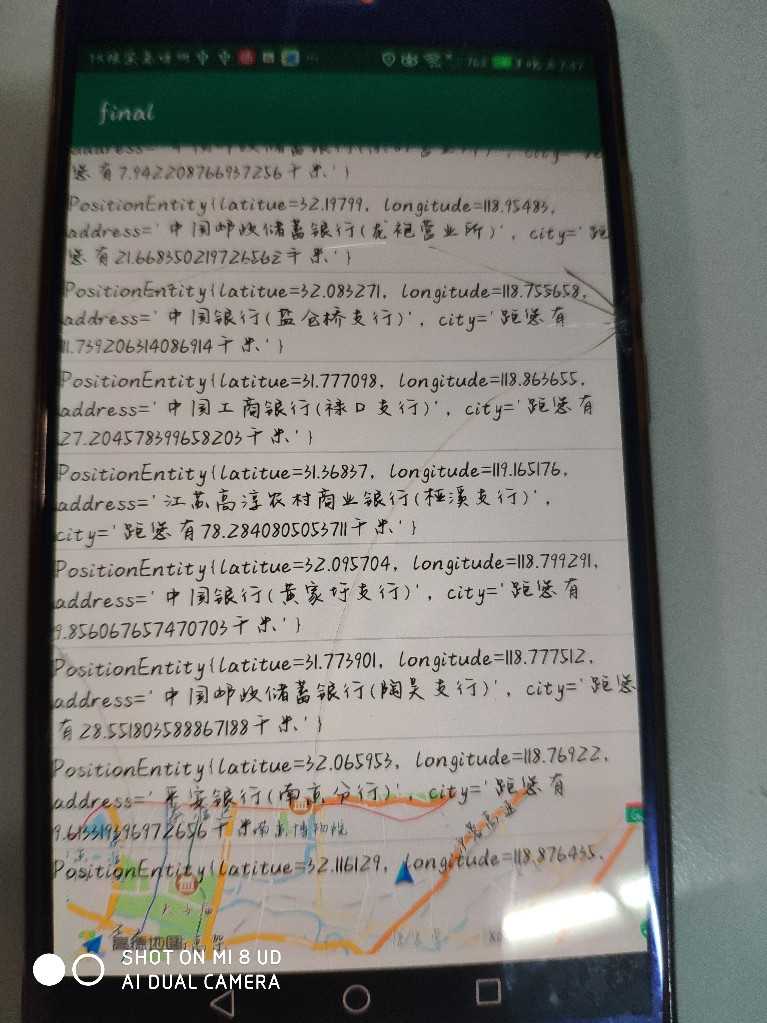 final
您有7.942208766937256千米'}
PositionEntity{latitue=32.19799, longitude=118.95483,
address='中国邮政储蓄银行(龙袍营业所)', city='距
您有21.668350219726562千米'}
PositionEntity{latitue=32.083271, longitude=118.755658,
address='中国银行(盐仓桥支行)', city='距您有
11.739206314086914千米'}
PositionEntity{latitue=31.777098, longitude=118.863655,
address='中国工商银行(禄口支行)', city='距您有
27.204578399658203千米'}
PositionEntity{latitue=31.36837, longitude=119.165176,
address='江苏高淳农村商业银行(桠溪支行)',
city='距您有78.2840805053711千米'}
PositionEntity{latitue=32.095704, longitude=118.799291,
address='中国银行(黄家圩支行)', city='距您有
9.856067657470703千米'}
PositionEntity{latitue=31.773901, longitude=118.777512,
address='中国邮政储蓄银行(陶吴支行)', city='距您
有28.551803588867188千米'}
PositionEntity{latitue=32.065953, longitude=118.76922,
address='平安银行(南京分行)', city='距您有
9.613319396972656千米
南京博物院
PositionEntity{latitue=32.116129, longitude=118.876435,
高德地图
SHOT ON MI 8 UD
AI DUAL CAMERA